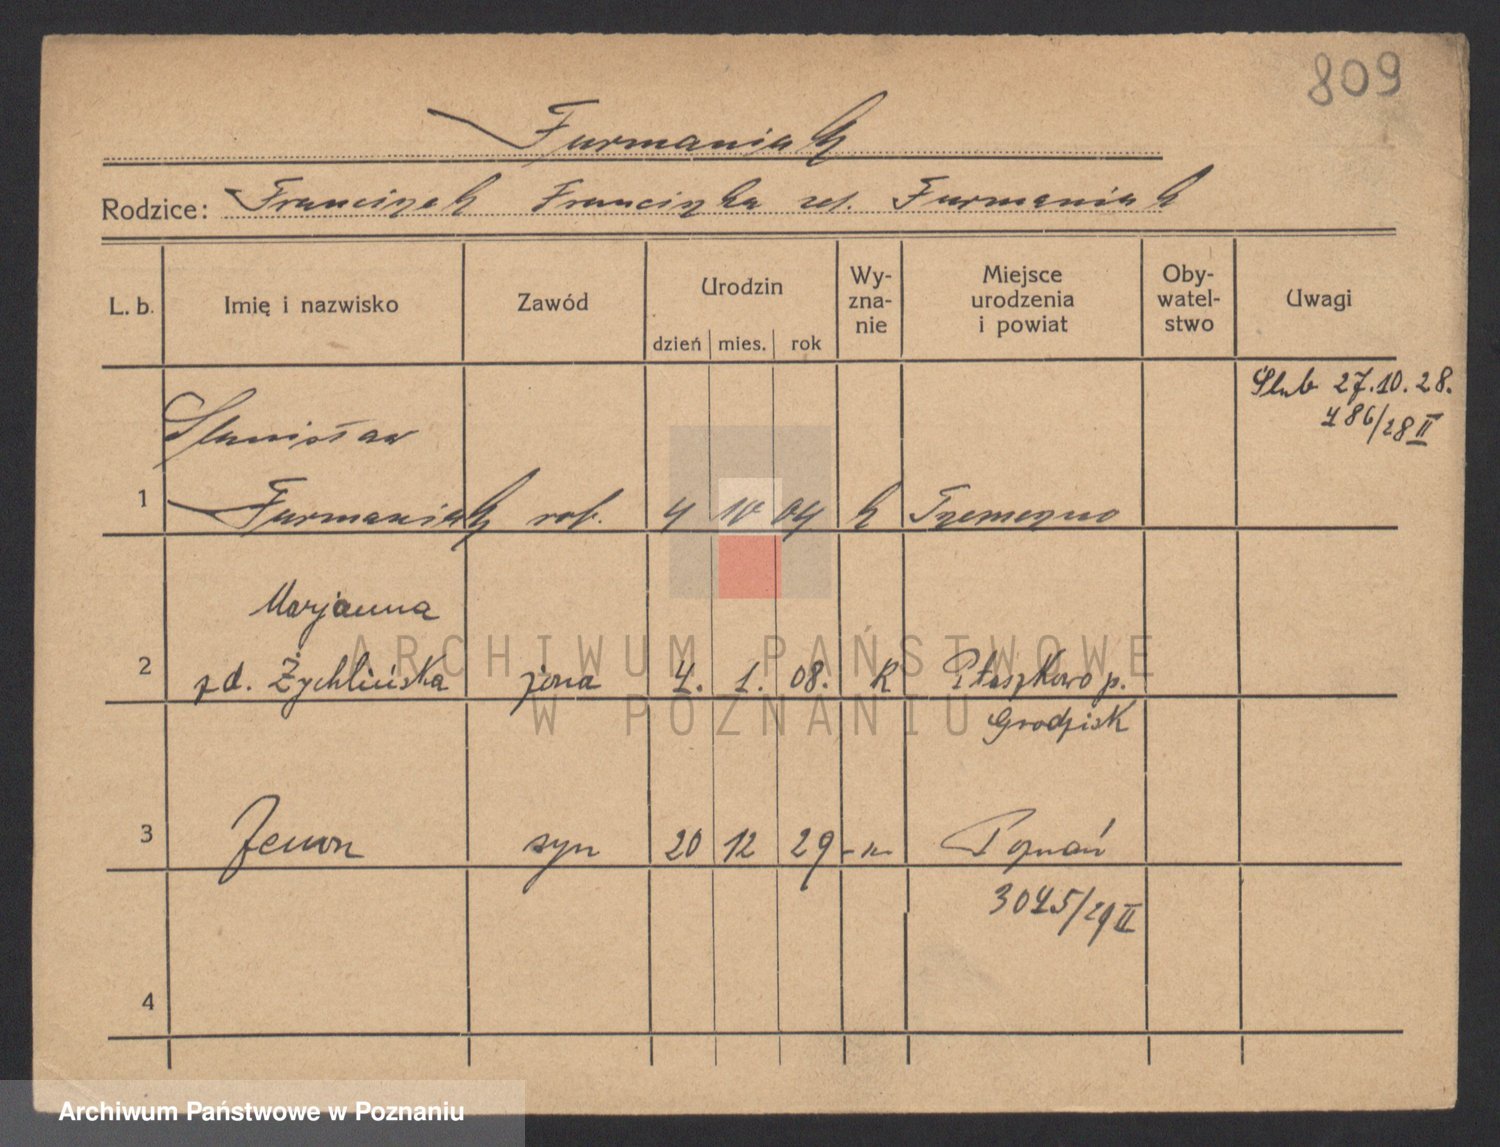 809
Furmaniak
Rodzice: Franciszek Franciszka zd. Furmaniak
L. b. Imię i nazwisko Zawód Urodzin dzień mies. rok Wy-zna-nie Miejsce urodzenia i powiat Oby-watel-stwo Uwagi
Ślub 27.10.28.
786/28 II
Stanisław
1 Furmaniak rob. 4 10 04 k Trzemeszno
Marjanna
2 zd. Żychlińska żona 4. 1. 08. k Ptaszkowo p.
Grodzisk
3 Zenon syn 20 12 29 -"- Poznań
3045/29 II
4
ARCHIWUM PAŃSTWOWE
W POZNANIU
Archiwum Państwowe w Poznaniu